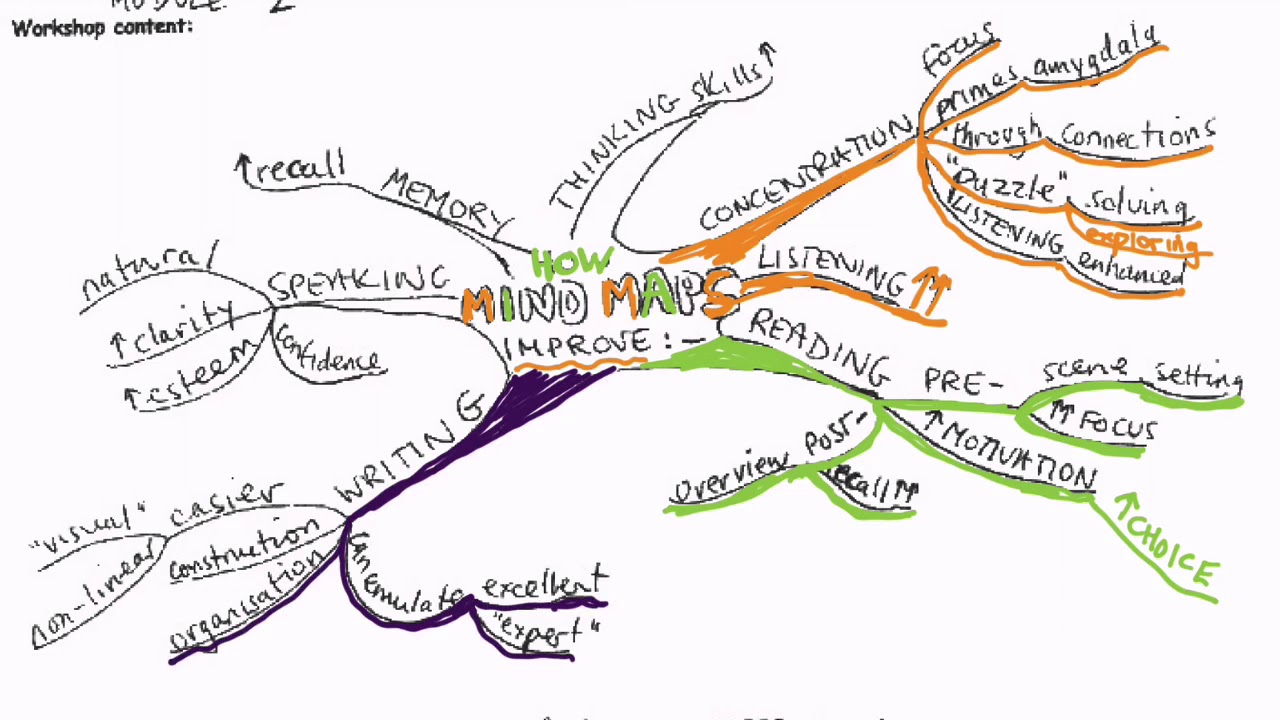 MODULE 2
Workshop content:
HOW
MIND MAPS
IMPROVE:-
THINKING skills ↑
CONCENTRATION
Focus
primes amygdala
through connections
"Puzzle" solving
exploring
LISTENING enhanced
LISTENING ↑↑
READING
PRE-
scene setting
↑↑ FOCUS
↑ MOTIVATION
↑ CHOICE
Post-
overview
recall ↑↑
WRITING
can emulate
excellent
"expert"
organisation
construction
easier
"visual"
non-linear
SPEAKING
natural
↑ clarity
↑ esteem
confidence
MEMORY
↑ recall